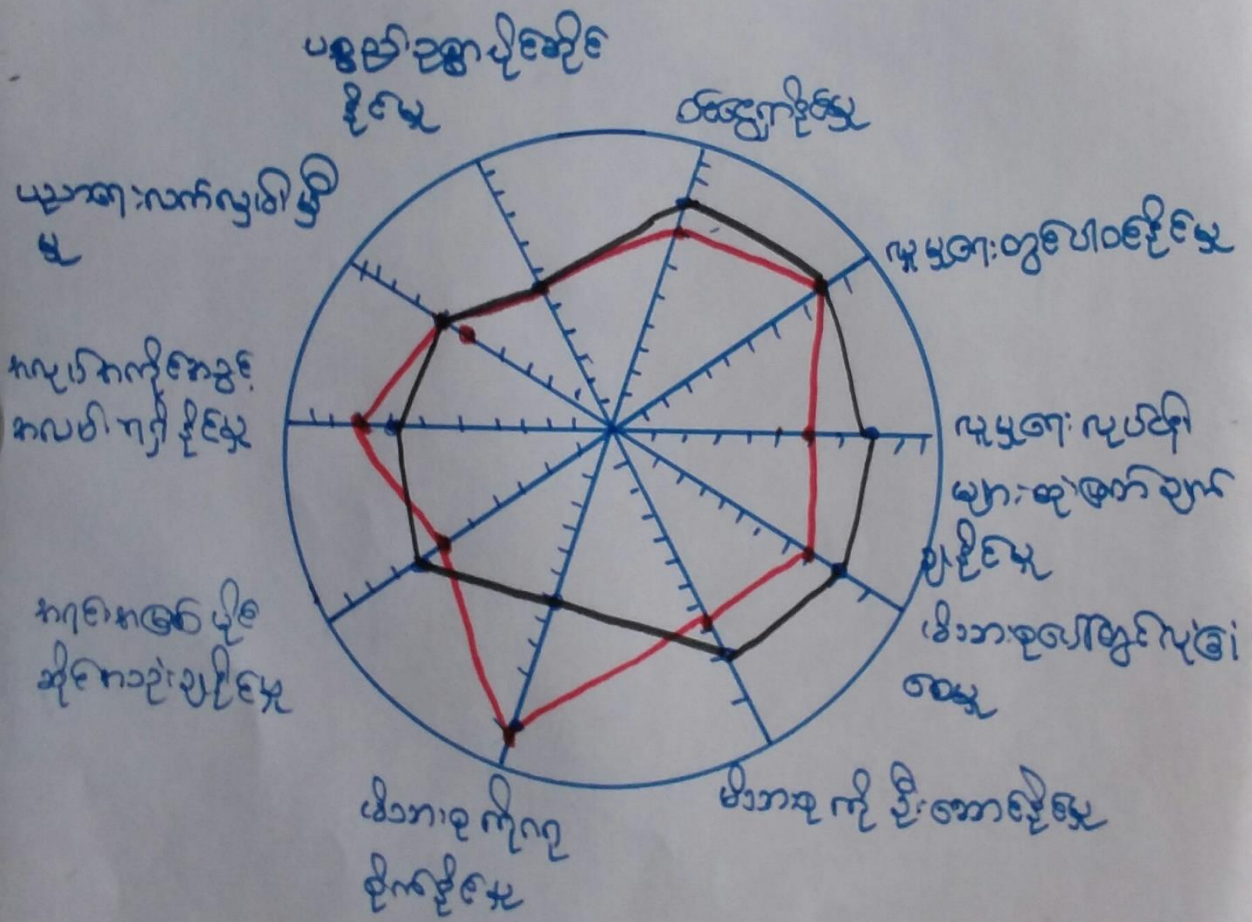 ပစ္စည်းဥစ္စာပိုင်ဆိုင်
နိုင်မှု
ဝင်ငွေရှာနိုင်မှု
လူမှုရေးတွင်ပါဝင်နိုင်မှု
လူမှုရေးလုပ်ငန်း
များဆုံးဖြတ်ချက်
ချနိုင်မှု
မိသားစုပေါ်တွင်လုံခြုံ
စေမှု
မိသားစုကို ဦးဆောင်နိုင်မှု
မိသားစုကို
နိုင်မှု
အရင်းအမြစ်ပိုင်
ဆိုင်အသုံးချနိုင်မှု
အလုပ်အကိုင်အခွင့်
အလမ်းရရှိနိုင်မှု
ပညာရေးလက်လှမ်းမှီ
မှု